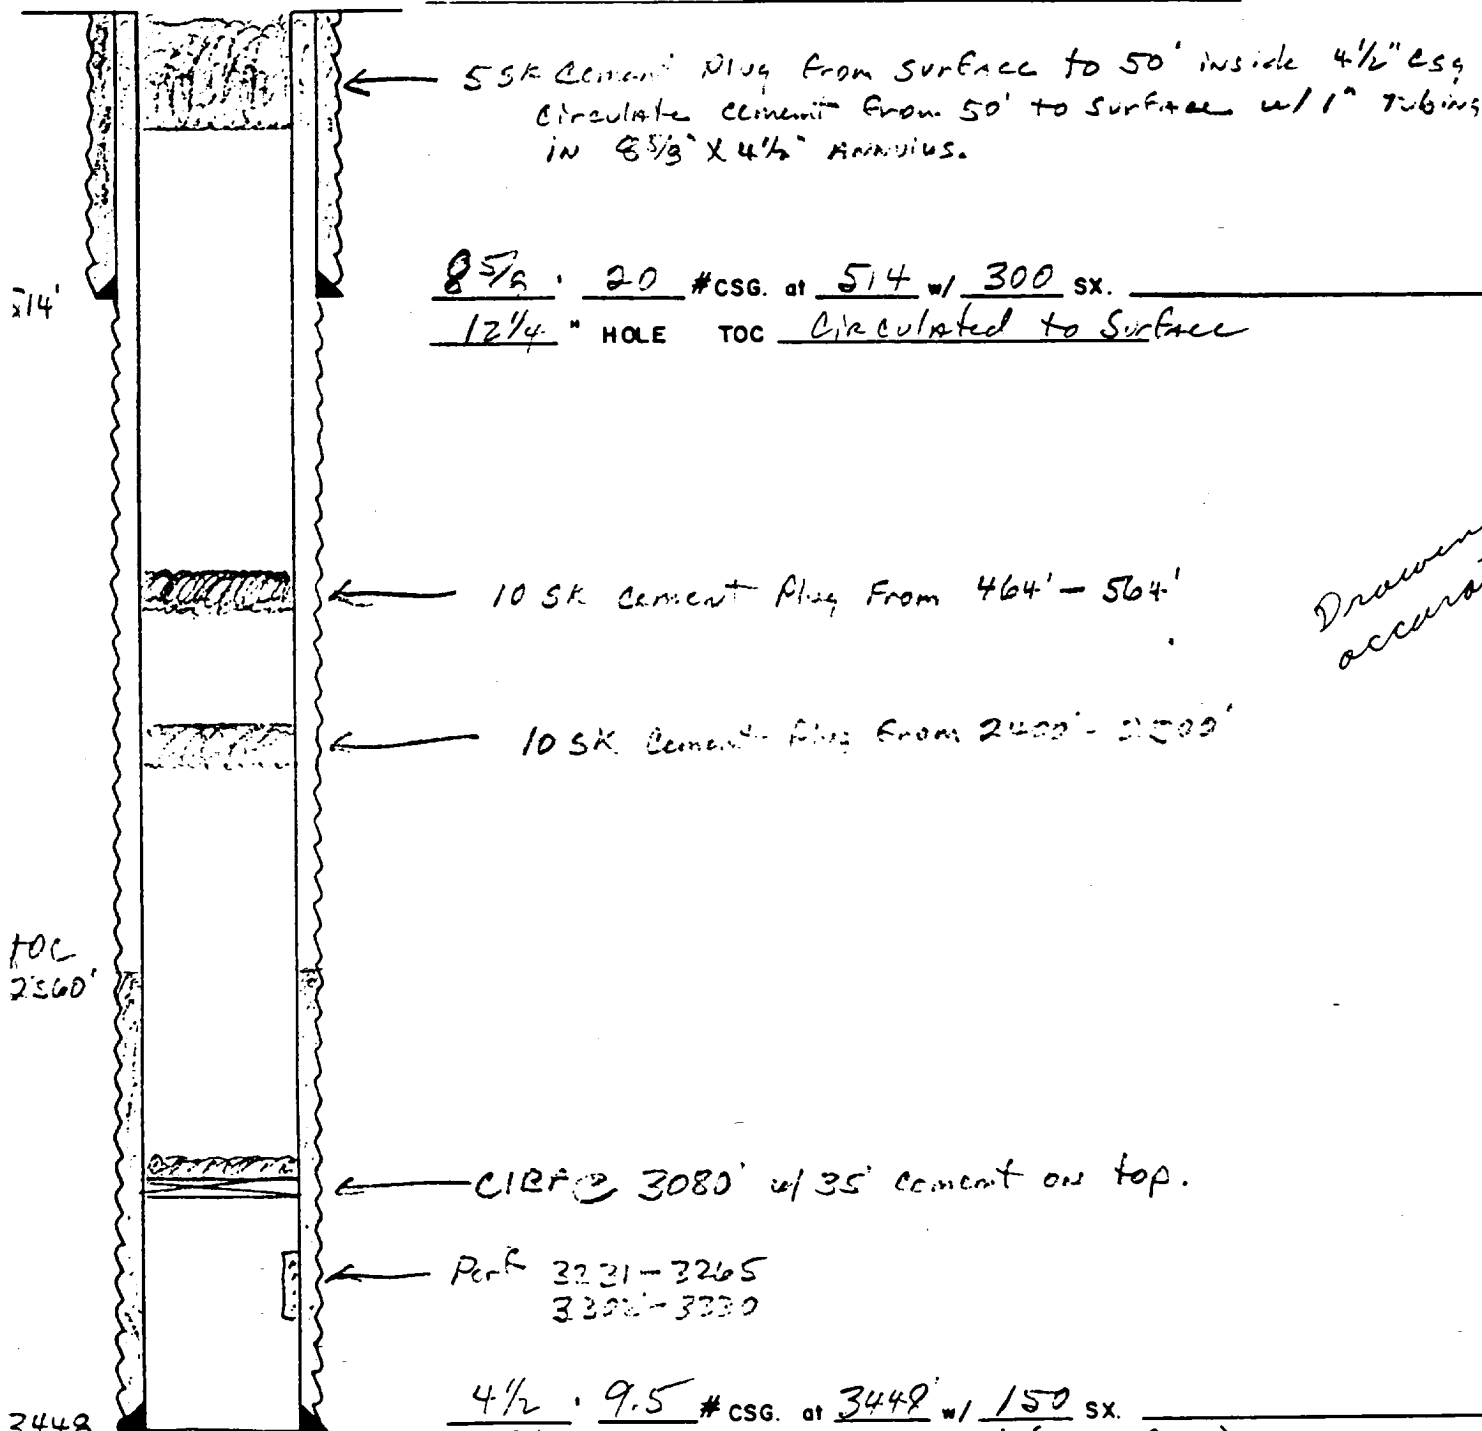 5 SK Cement Plug from surface to 50' inside 4½" csg
circulate cement from 50' to surface w/ 1" Tubing
in 8⅝" X 4½" Annulus.
8 5/8 " 20 #CSG. at 514 w/ 300 SX.
514'
12¼ " HOLE TOC Circulated to Surface
10 SK cement Plug From 464' - 564'
Drawing
10 SK Cement Plug From 2400' - 2500'
TOC
CIBP @ 3080' w/ 35' cement on top.
Perf 3231-3265
3302'-3330
4½ " 9.5 #CSG. at 3448' w/ 150 SX.
3448